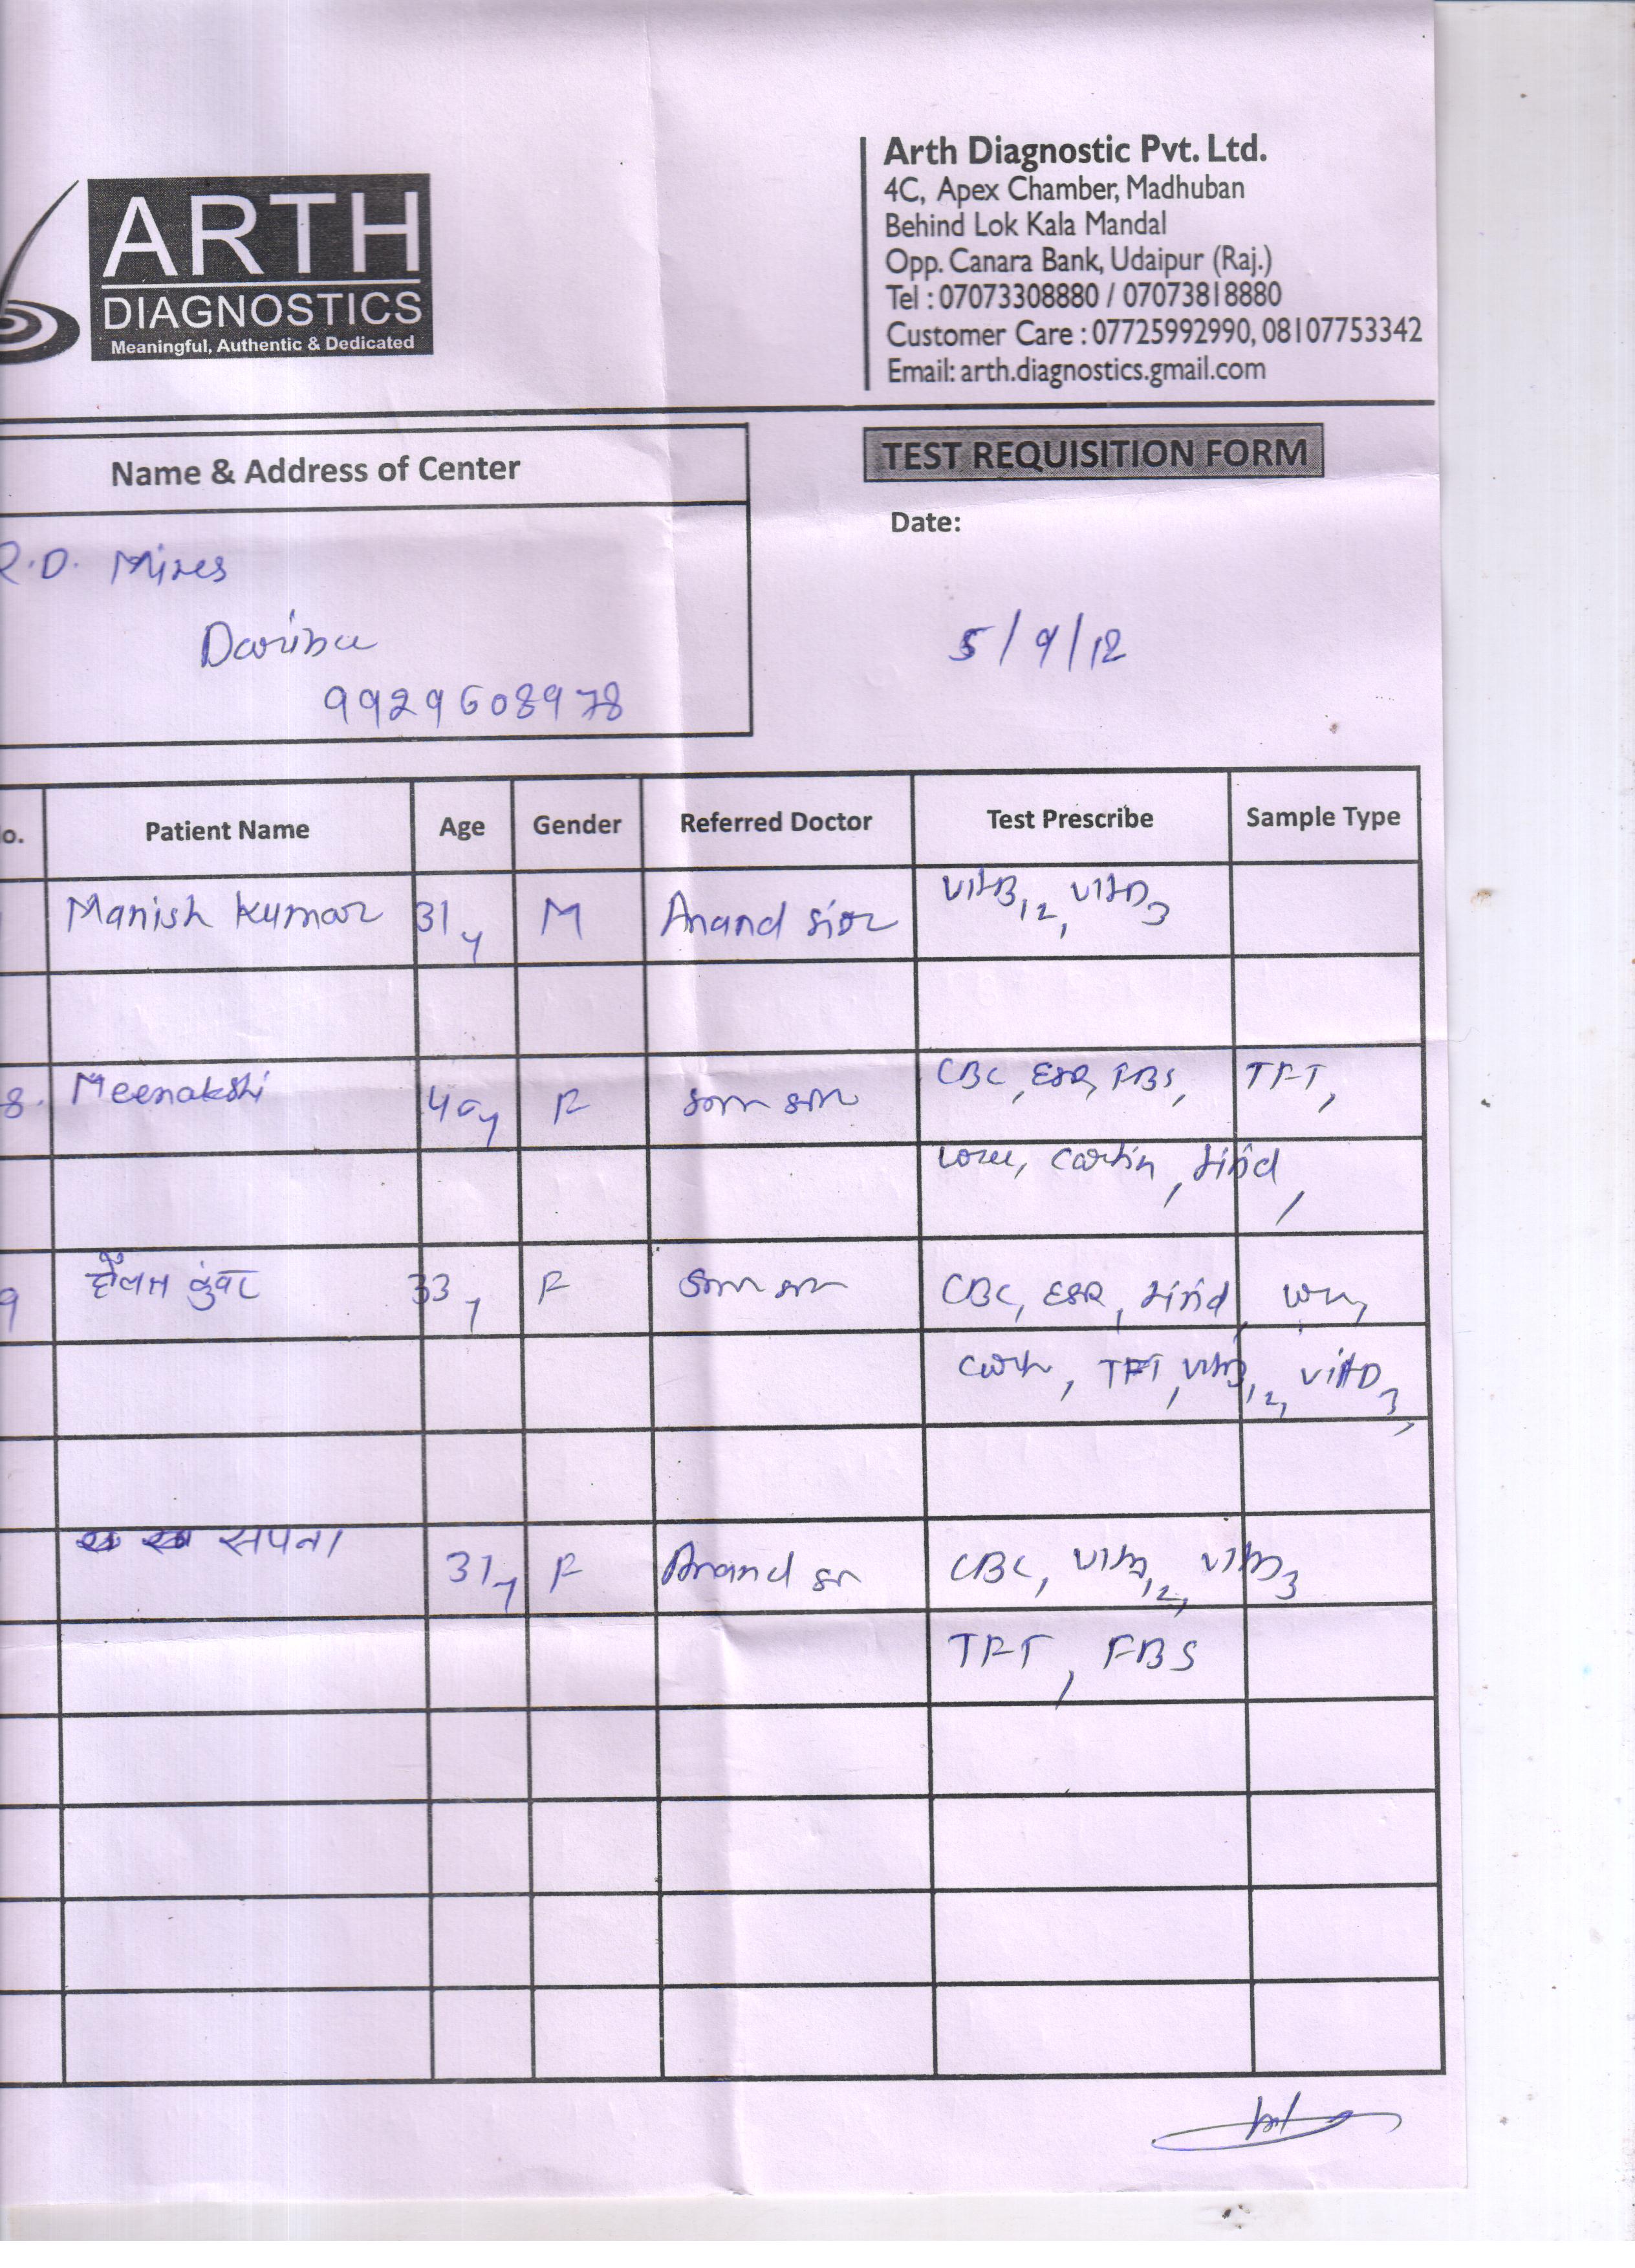 ARTH
DIAGNOSTICS
Meaningful, Authentic & Dedicated
Arth Diagnostic Pvt. Ltd.
4C, Apex Chamber, Madhuban
Behind Lok Kala Mandal
Opp. Canara Bank, Udaipur (Raj.)
Tel : 07073308880 / 07073818880
Customer Care : 07725992990, 08107753342
Email: arth.diagnostics.gmail.com
Name & Address of Center
TEST REQUISITION FORM
Date:
R.D. Mines
Dariba
9929608978
5/9/12
o. Patient Name Age Gender Referred Doctor Test Prescribe Sample Type
Manish Kumar 31y M Anand sir VitB12, VitD3
8. Meenakshi 40y F CBC, ESR, FBS, TFT,
9 कुंवर 33y F CBC, ESR,
TFT, VitB12, VitD3,
सपना 31y F Anand sr CBC, VitB12, VitD3
TFT, FBS